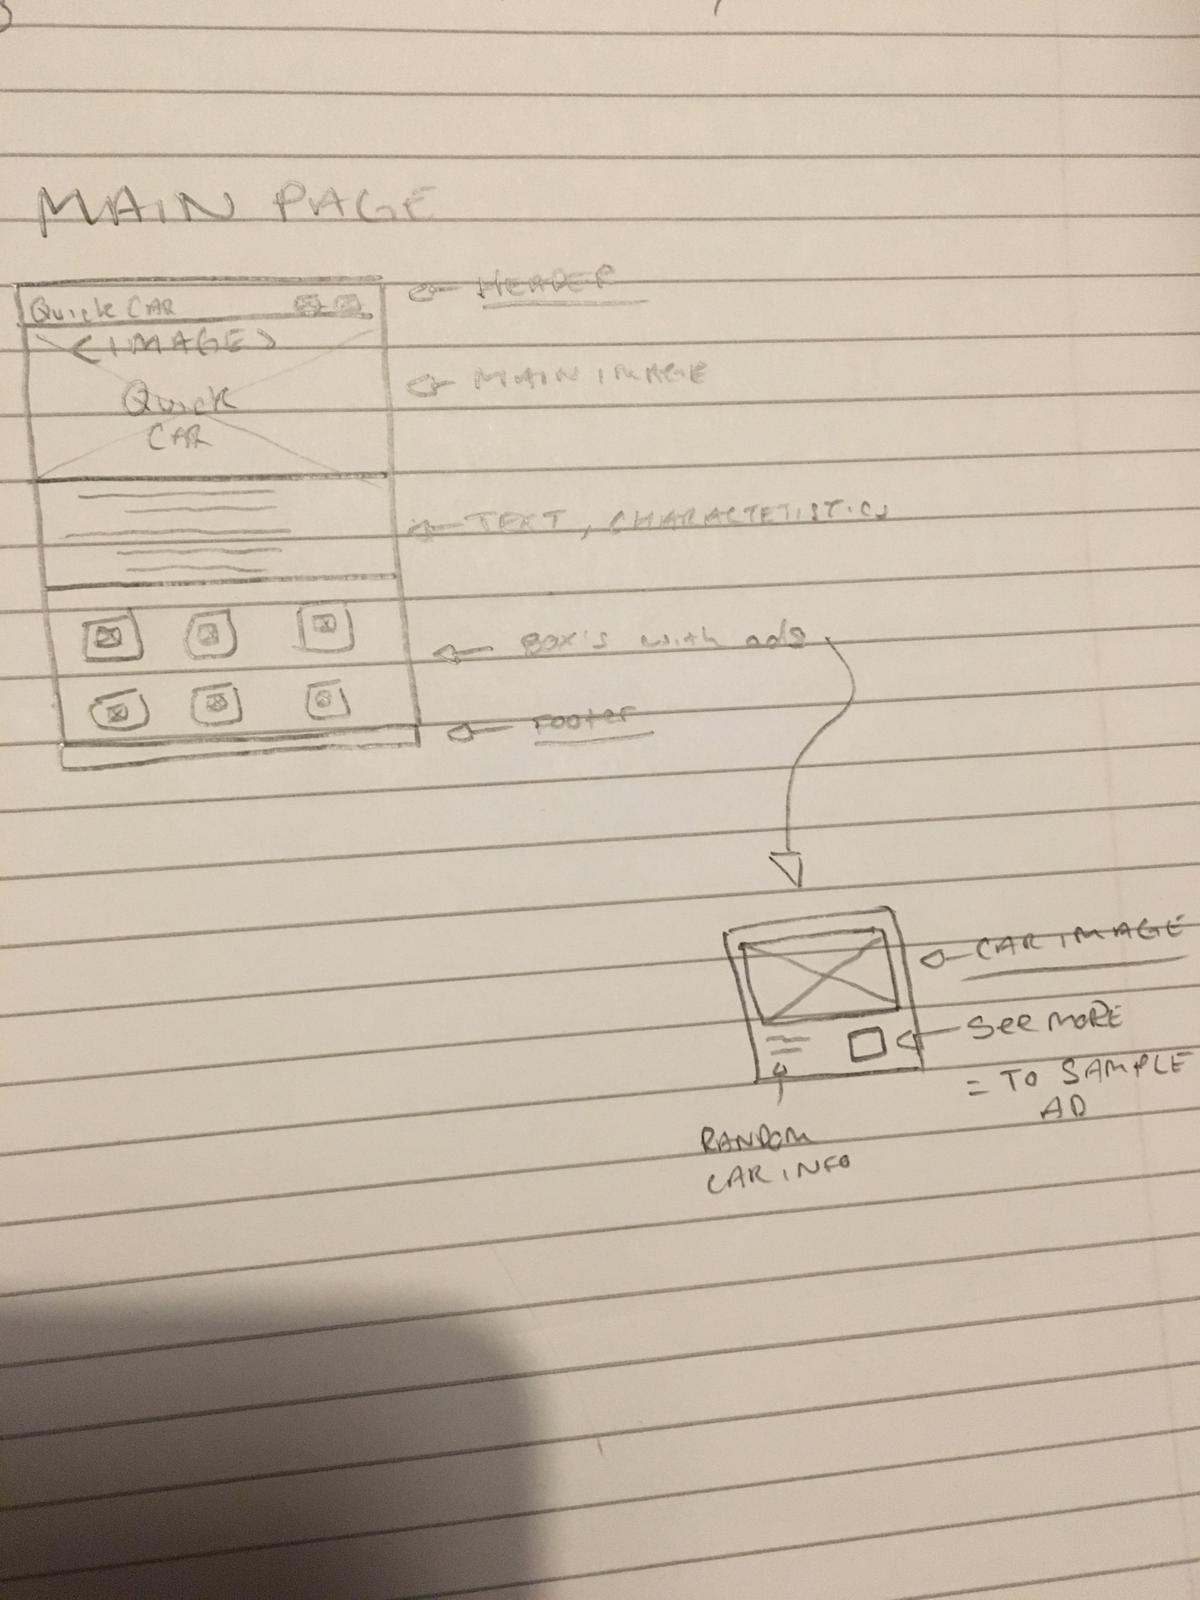 MAIN PAGE
Quick CAR
<IMAGE>
Quick
CAR
HEADER
MAIN IMAGE
TEXT, CHARACTETISTICS
BOX'S with ads
Footer
CAR IMAGE
SEE MORE
= TO SAMPLE
AD
RANDOM
CAR INFO